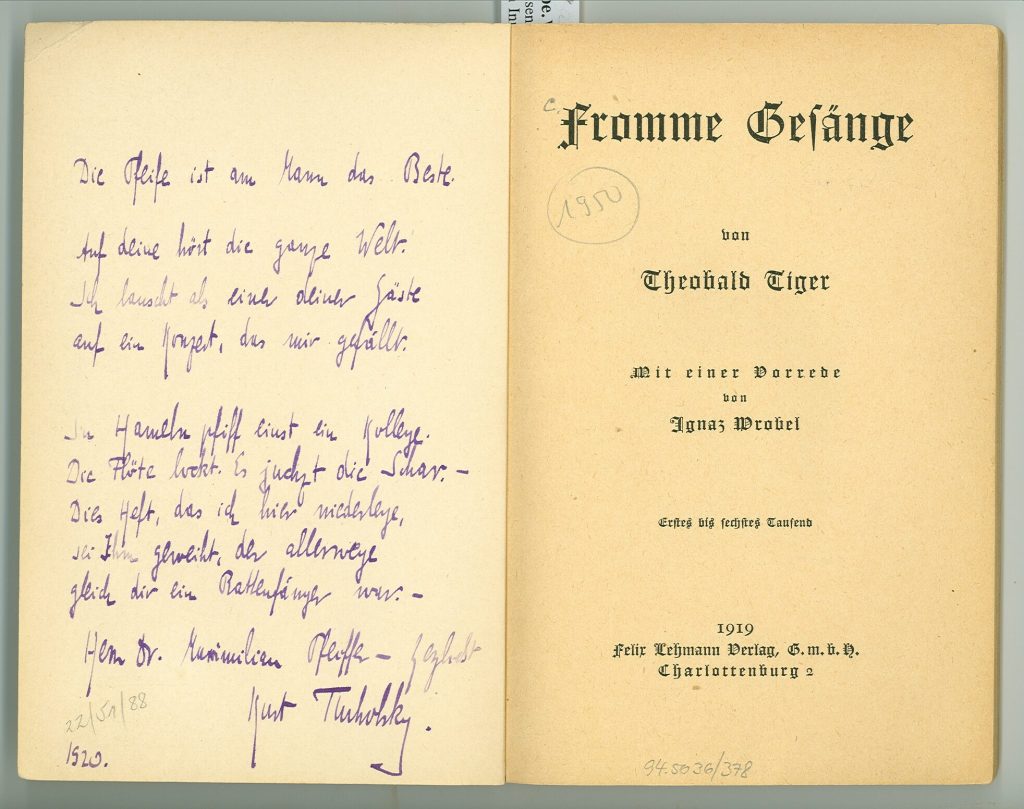 Die Pfeife ist am Mann das Beste.
Auf deine hört die ganze Welt.
Ich lauscht als einer deiner Gäste
auf ein Konzert, das mir gefällt.
In Hameln pfiff einst ein Kollege.
Die Flöte lockt. Es juchzt die Schar. –
Dies Heft, das ich hier niederlege,
sei Ihm geweiht, der allerwege
gleich dir ein Rattenfänger war. –
Herrn Dr. Maximilian Pfeiffer –
Kurt Tucholsky.
22/51/88
1920.
Fromme Geſänge
1950
von
Theobald Tiger
Mit einer Vorrede
von
Ignaz Wrobel
Erſtes bis ſechſtes Tauſend
1919
Felix Lehmann Verlag, G.m.b.H.
Charlottenburg 2
94.5036/378